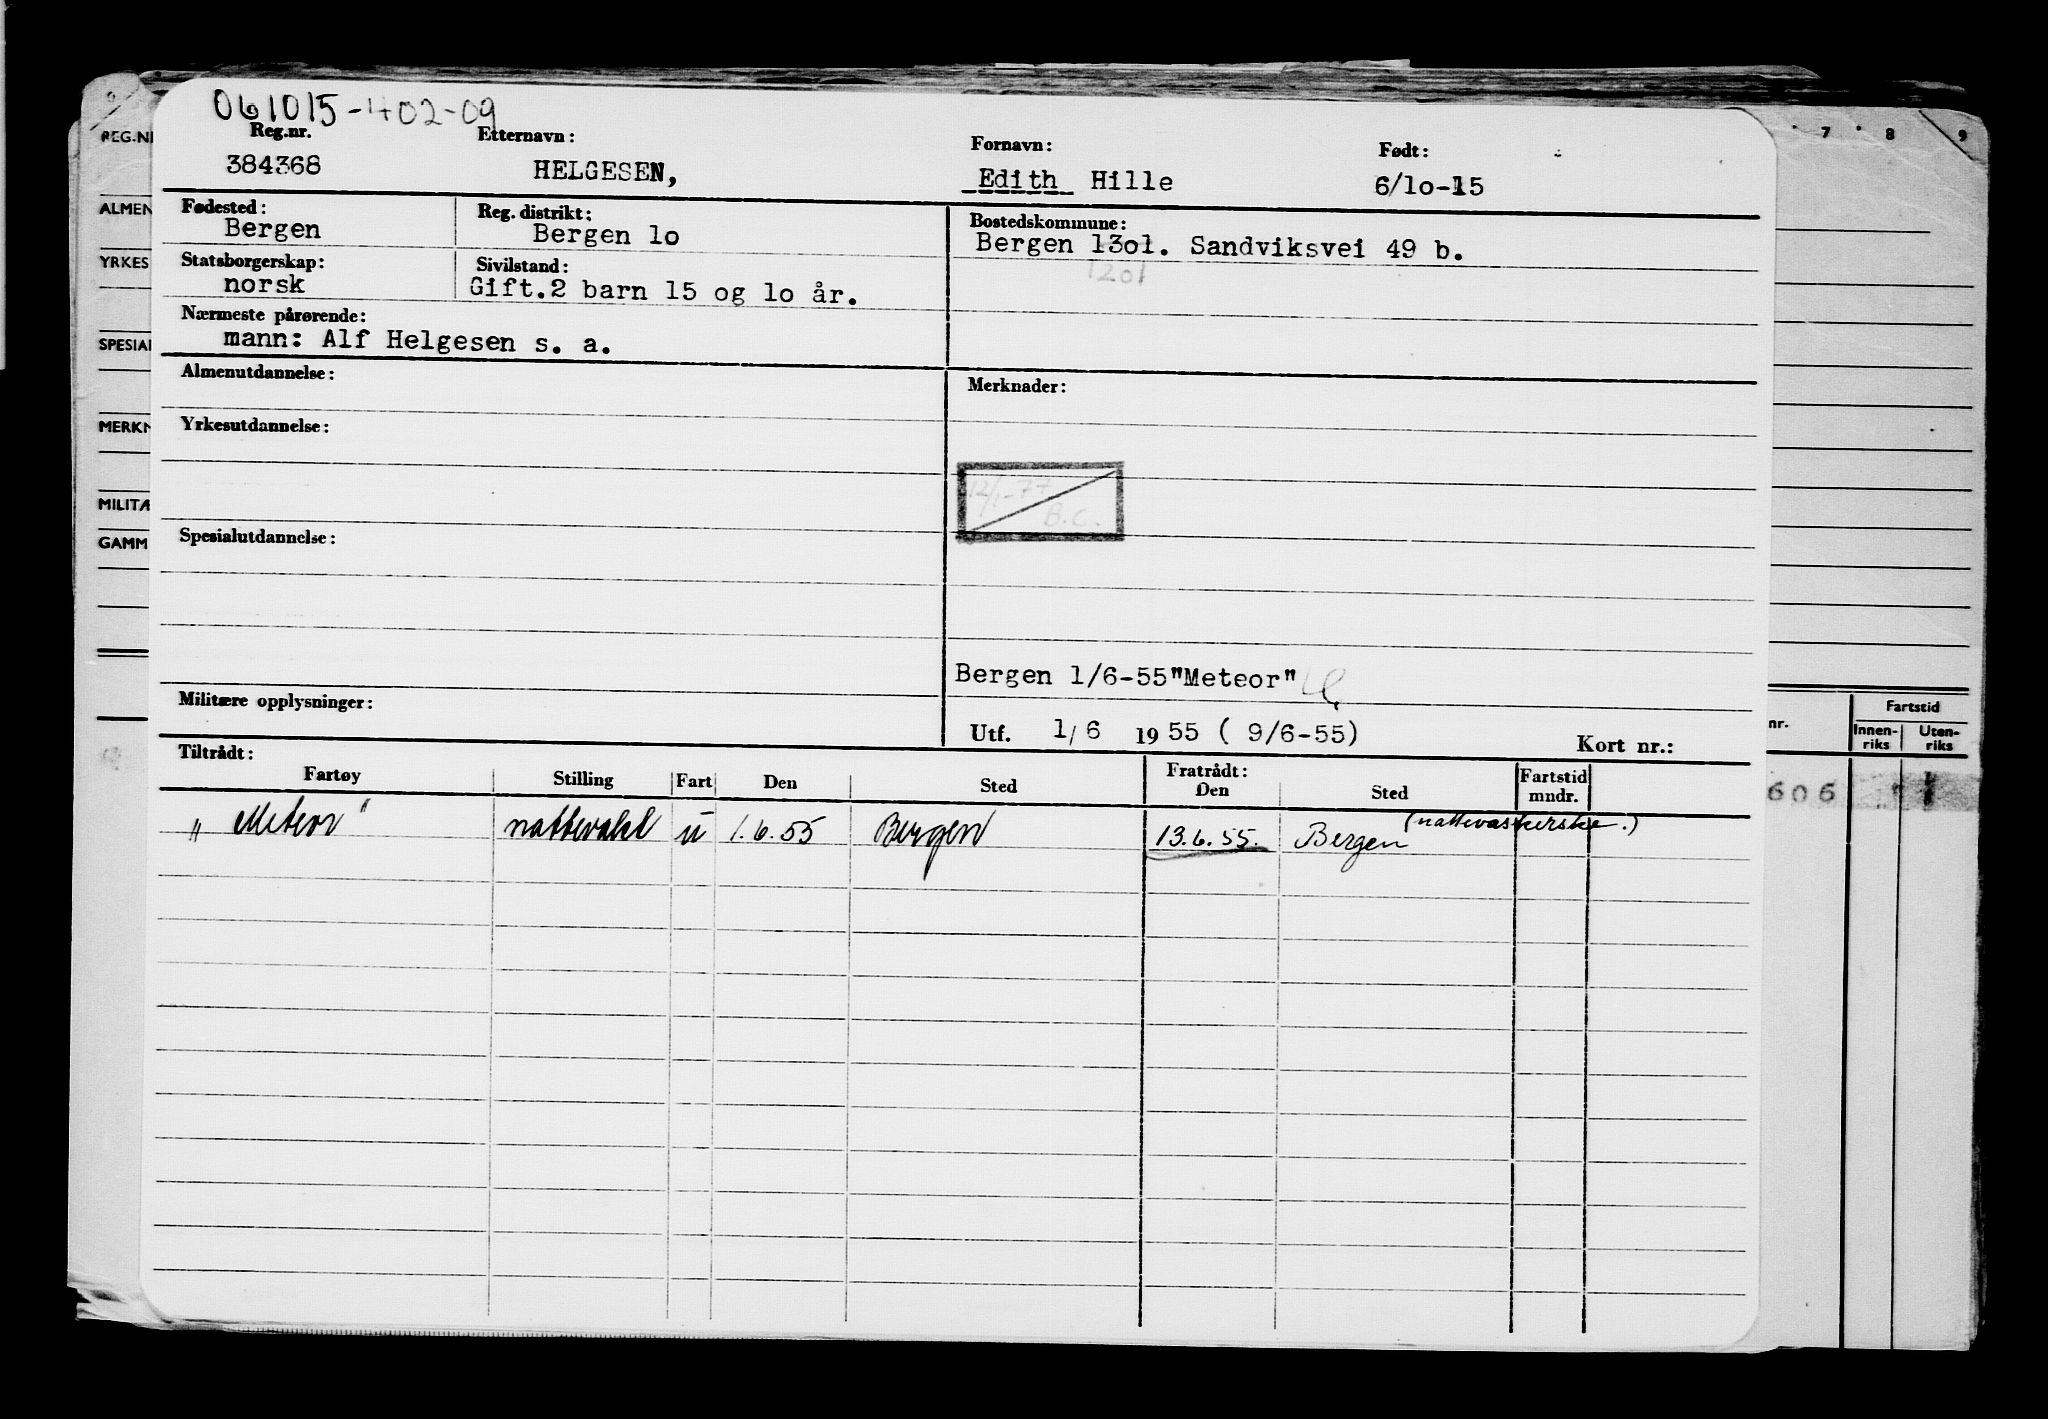 061015-402-09
Reg.nr. Etternavn: Fornavn: Født:
384368 HELGESEN, Edith Hille 6/lo-15
Fødested: Reg. distrikt: Bostedskommune:
Bergen Bergen lo Bergen 13ol. Sandviksvei 49 b.
1201
Statsborgerskap: Sivilstand:
norsk Gift.2 barn 15 og lo år.
Nærmeste pårørende:
mann: Alf Helgesen s. a.
Almenutdannelse: Merknader:
Yrkesutdannelse:
12/1-77
B.C.
Spesialutdannelse:
Bergen 1/6-55"Meteor"
Militære opplysninger:
Utf. 1/6 1955 ( 9/6-55) Kort nr.:
Tiltrådt: Fratrådt: Fartstid
Fartøy Stilling Fart Den Sted Den Sted mndr.
"Meteor" nattevakt u 1.6.55 Bergen 13.6.55. Bergen (nattevaskerske.)
REG.N
ALMEN
YRKES
SPESIAL
MERKN
MILITÆ
GAMM
7 8 9
nr. Fartstid
Innen-riks Uten-riks
606 1